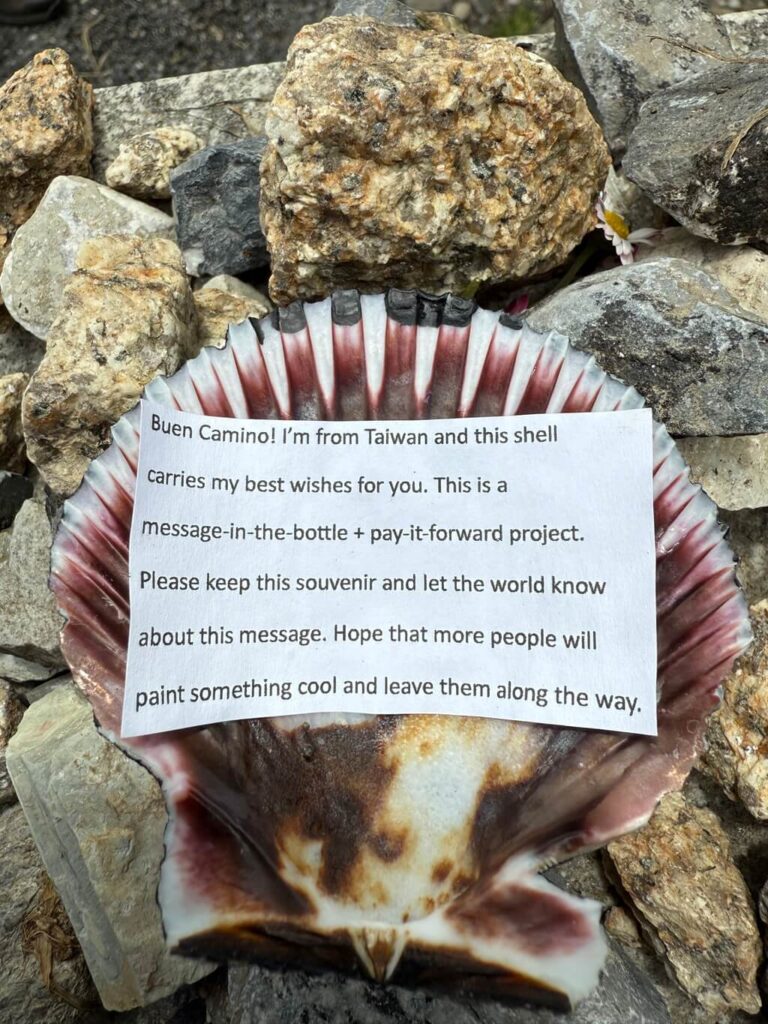 Buen Camino! I'm from Taiwan and this shell
carries my best wishes for you. This is a
message-in-the-bottle + pay-it-forward project.
Please keep this souvenir and let the world know
about this message. Hope that more people will
paint something cool and leave them along the way.